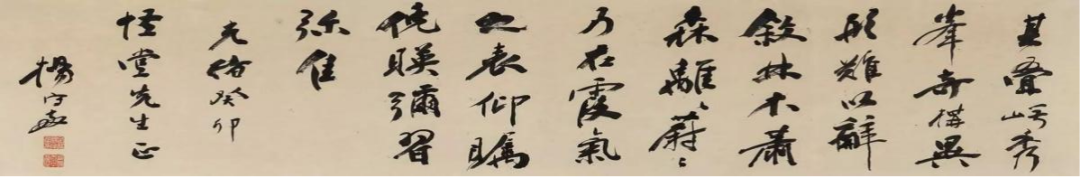 其疊崿秀
峯奇構異
形難以辭
敘林木蕭
森離〻蔚〻
乃在霞氣
之表仰矚
俛暎彌習
弥佳
光緒癸卯
堂先生正
楊守敬